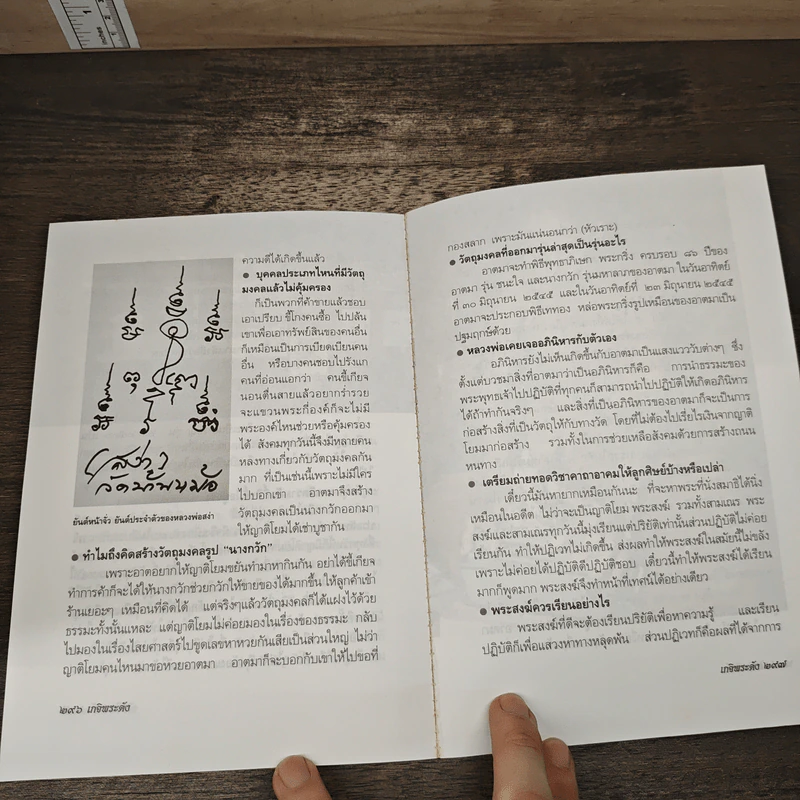 ความดีได้เกิดขึ้นแล้ว
● บุคคลประเภทไหนที่มีวัตถุ
มงคลแล้วไม่คุ้มครอง
ก็เป็นพวกที่ค้าขายแล้วชอบ
เอาเปรียบ ขี้โกงคนซื้อ ไปปล้น
เขาเพื่อเอาทรัพย์สินของคนอื่น
ก็เหมือนเป็นการเบียดเบียนคน
อื่น หรือบางคนชอบไปรังแก
คนที่อ่อนแอกว่า คนขี้เกียจ
นอนตื่นสายแล้วอยากร่ำรวย
จะแขวนพระกี่องค์ก็จะไม่มี
พระองค์ไหนช่วยหรือคุ้มครอง
ได้ สังคมทุกวันนี้จึงมีหลายคน
หลงทางเกี่ยวกับวัตถุมงคลกัน
มาก ที่เป็นเช่นนี้เพราะไม่มีใคร
ไปบอกเขา อาตมาจึงสร้าง
วัตถุมงคลเป็นนางกวักออกมา
ให้ญาติโยมได้เช่าบูชากัน
ยันต์หน้าจั่ว ยันต์ประจำตัวของหลวงพ่อสง่า
● ทำไมถึงคิดสร้างวัตถุมงคลรูป "นางกวัก"
เพราะอาตอยากให้ญาติโยมขยันทำมาหากินกัน อย่าได้ขี้เกียจ
ทำการค้าก็จะได้ให้นางกวักช่วยกวักให้ขายของได้มากขึ้น ให้ลูกค้าเข้า
ร้านเยอะๆ เหมือนที่คิดได้ แต่จริงๆแล้ววัตถุมงคลก็ได้แฝงไว้ด้วย
ธรรมะทั้งนั้นแหละ แต่ญาติโยมไม่ค่อยมองในเรื่องของธรรมะ กลับ
ไปมองในเรื่องไสยศาสตร์ไปขูดเลขหาหวยกันเสียเป็นส่วนใหญ่ ไม่ว่า
ญาติโยมคนไหนมาขอหวยอาตมา อาตมาก็จะบอกกับเขาให้ไปขอที่
๒๙๖ เกจิพระดัง
กองสลาก เพราะมันแน่นอนกว่า (หัวเราะ)
● วัตถุมงคลที่ออกมารุ่นล่าสุดเป็นรุ่นอะไร
อาตมาจะทำพิธีพุทธาภิเษก พระกริ่ง ครบรอบ ๘๖ ปีของ
อาตมา รุ่น ชนะใจ และนางกวัก รุ่นมหาลาภของอาตมา ในวันอาทิตย์
ที่ ๓๐ มิถุนายน ๒๕๔๕ และในวันอาทิตย์ที่ ๒๓ มิถุนายน ๒๕๔๕
อาตมาจะประกอบพิธีเททอง หล่อพระกริ่งรูปเหมือนของอาตมาเป็น
ปฐมฤกษ์ด้วย
● หลวงพ่อเคยเจออภินิหารกับตัวเอง
อภินิหารยังไม่เห็นเกิดขึ้นกับอาตมาเป็นแสงแวววับต่างๆ ซึ่ง
ตั้งแต่บวชมาสิ่งที่อาตมาว่าเป็นอภินิหารก็คือ การนำธรรมะของ
พระพุทธเจ้าไปปฏิบัติที่ทุกคนก็สามารถนำไปปฏิบัติให้เกิดอภินิหาร
ได้ถ้าทำกันจริงๆ และสิ่งที่เป็นอภินิหารของอาตมาก็จะเป็นการ
ก่อสร้างสิ่งที่เป็นวัตถุให้กับทางวัด โดยที่ไม่ต้องไปเรี่ยไรเงินจากญาติ
โยมมาก่อสร้าง รวมทั้งในการช่วยเหลือสังคมด้วยการสร้างถนน
หนทาง
● เตรียมถ่ายทอดวิชาคาถาอาคมให้ลูกศิษย์บ้างหรือเปล่า
เดี๋ยวนี้มันหายากเหมือนกันนะ ที่จะหาพระที่นั่งสมาธิได้นิ่ง
เหมือนในอดีต ไม่ว่าจะเป็นญาติโยม พระสงฆ์ รวมทั้งสามเณร พระ
สงฆ์และสามเณรทุกวันนี้มุ่งเรียนแต่ปริยัติเท่านั้นส่วนปฏิบัติไม่ค่อย
เรียนกัน ทำให้ปฏิเวทไม่เกิดขึ้น ส่งผลทำให้พระสงฆ์ในสมัยนี้ไม่ขลัง
เพราะไม่ค่อยได้ปฏิบัติดีปฏิบัติชอบ เดี๋ยวนี้ทำให้พระสงฆ์ได้เรียน
มากก็พูดมาก พระสงฆ์จึงทำหน้าที่เทศน์ได้อย่างเดียว
● พระสงฆ์ควรเรียนอย่างไร
พระสงฆ์ที่ดีจะต้องเรียนปริยัติเพื่อหาความรู้ และเรียน
ปฏิบัติก็เพื่อแสวงหาทางหลุดพ้น ส่วนปฏิเวทก็คือผลที่ได้จากการ
เกจิพระดัง ๒๙๗